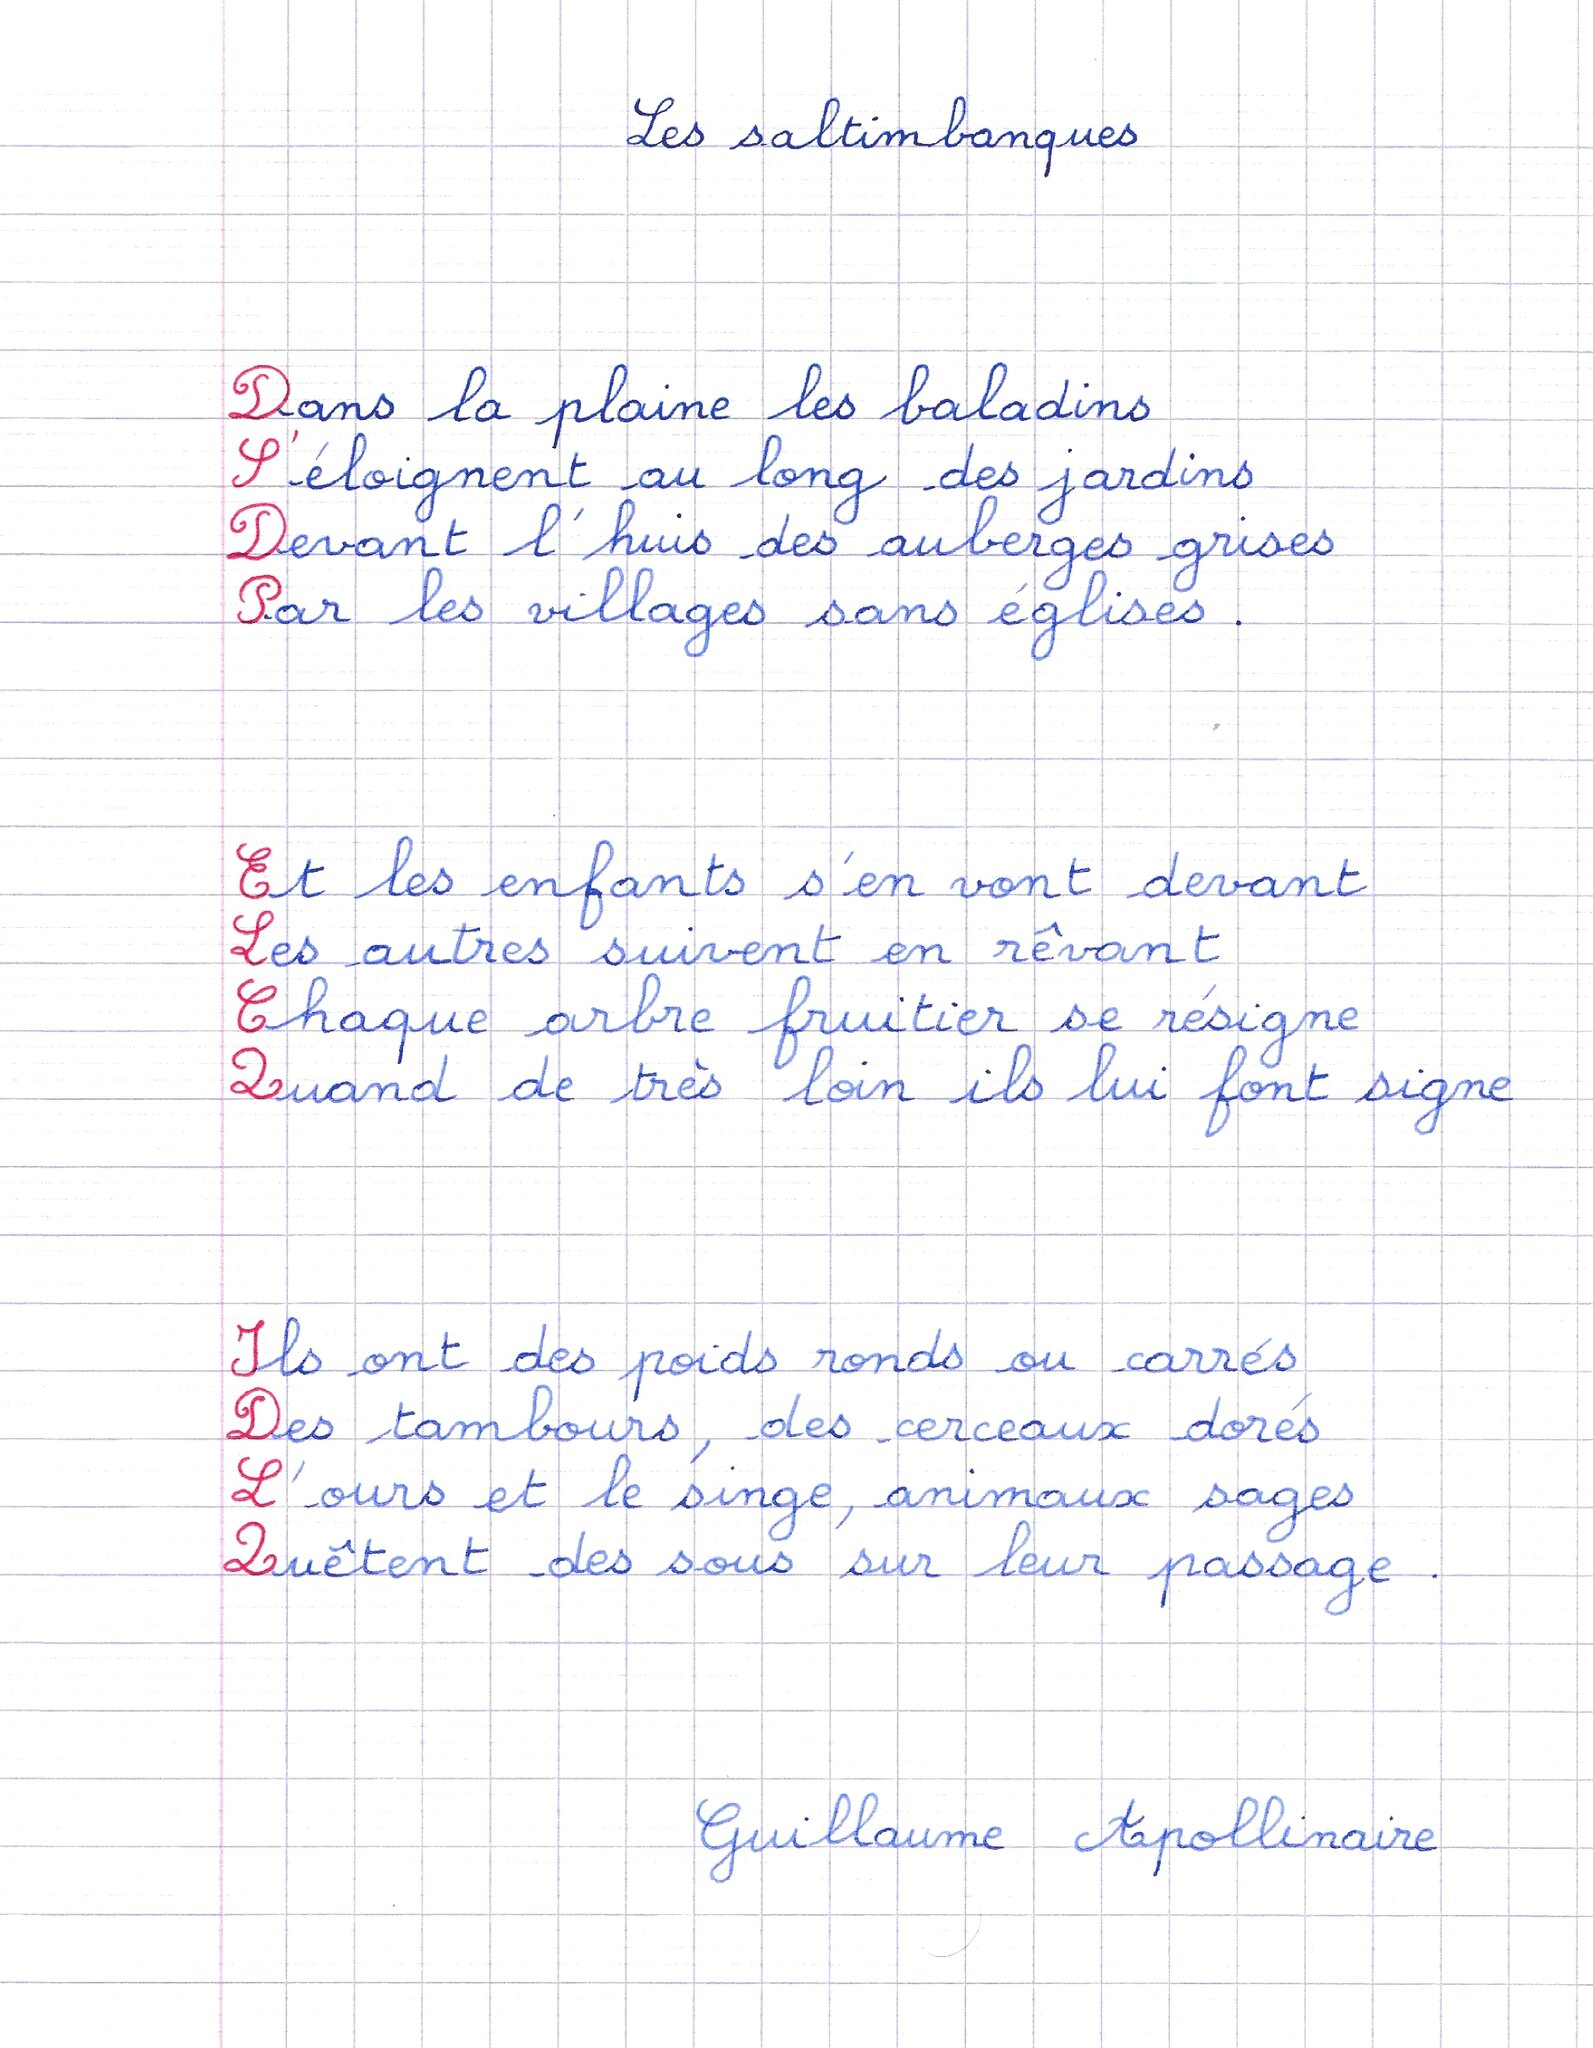 Les saltimbanques
Dans la plaine les baladins
S'éloignent au long des jardins
Devant l'huis des auberges grises
Par les villages sans églises.
Et les enfants s'en vont devant
Les autres suivent en rêvant
Chaque arbre fruitier se résigne
Quand de très loin ils lui font signe
Ils ont des poids ronds ou carrés
Des tambours, des cerceaux dorés
L'ours et le singe, animaux sages
Quêtent des sous sur leur passage.
Guillaume Apollinaire